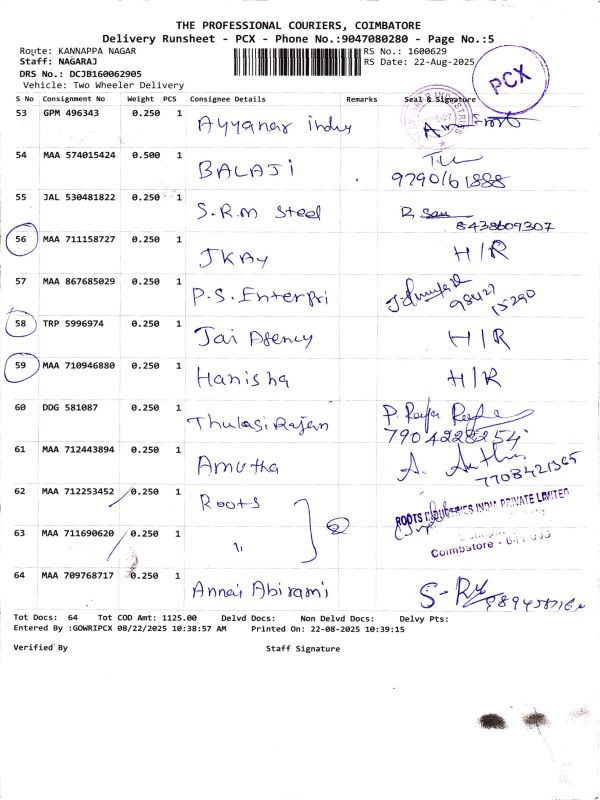 THE PROFESSIONAL COURIERS, COIMBATORE
Delivery Runsheet - PCX - Phone No.:9047080280 - Page No.:5
Route: KANNAPPA NAGAR RS No.: 1600629
Staff: NAGARAJ RS Date: 22-Aug-2025
DRS No.: DCJB160062905
Vehicle: Two Wheeler Delivery
PCX
S No Consignment No Weight PCS Consignee Details Remarks Seal & Signature
53 GPM 496343 0.250 1 Ayyanar indus
54 MAA 574015424 0.500 1 BALAJI
9790161888
55 JAL 530481822 0.250 1 S.R.M Steel
8438609307
56 MAA 711158727 0.250 1 JKAY H/R
57 MAA 867685029 0.250 1 P.S.Enterpri
98427
15290
58 TRP 5996974 0.250 1 Jai Agency H/R
59 MAA 710946880 0.250 1 Hanisha H/R
60 DDG 581087 0.250 1 Thulasi Rajan
7904228254
61 MAA 712443894 0.250 1 Amutha
7708421365
62 MAA 712253452 0.250 1 Roots 2 ROOTS INDUSTRIES INDIA PRIVATE LIMITED
63 MAA 711690620 0.250 1 "
Coimbatore -
64 MAA 709768717 0.250 1 Annai Abirami
Tot Docs: 64 Tot COD Amt: 1125.00 Delvd Docs: Non Delvd Docs: Delvy Pts:
Entered By :GOWRIPCX 08/22/2025 10:38:57 AM Printed On: 22-08-2025 10:39:15
Verified By Staff Signature